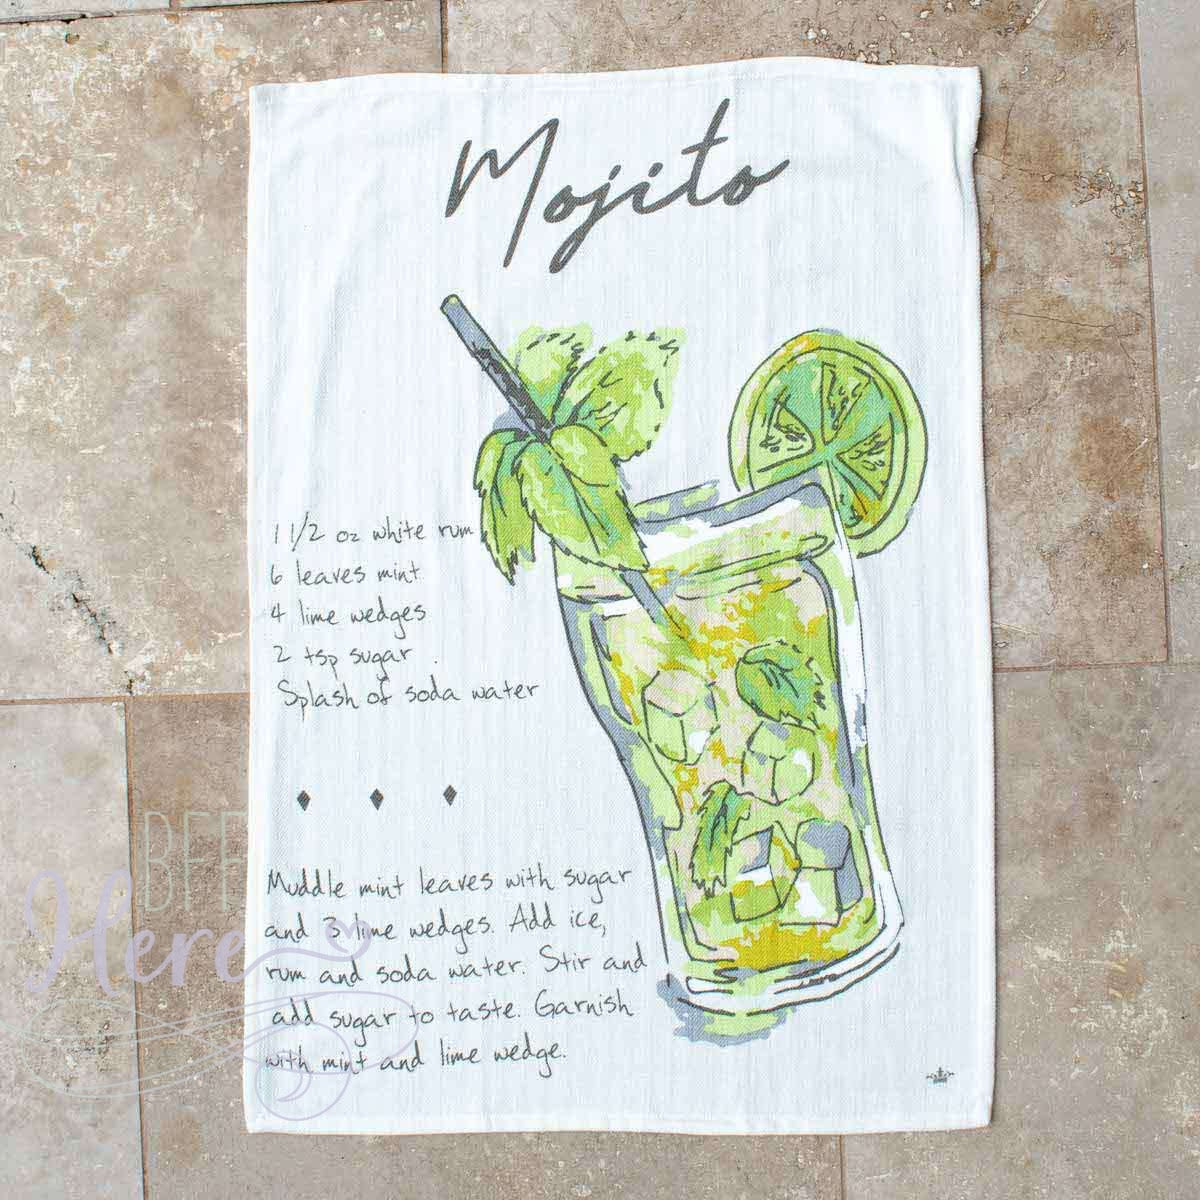 Mojito
1 1/2 oz white rum
6 leaves mint
4 lime wedges
2 tsp sugar
Splash of soda water
Muddle mint leaves with sugar
and 3 lime wedges. Add ice,
rum and soda water. Stir and
add sugar to taste. Garnish
with mint and lime wedge.
BEE
Here